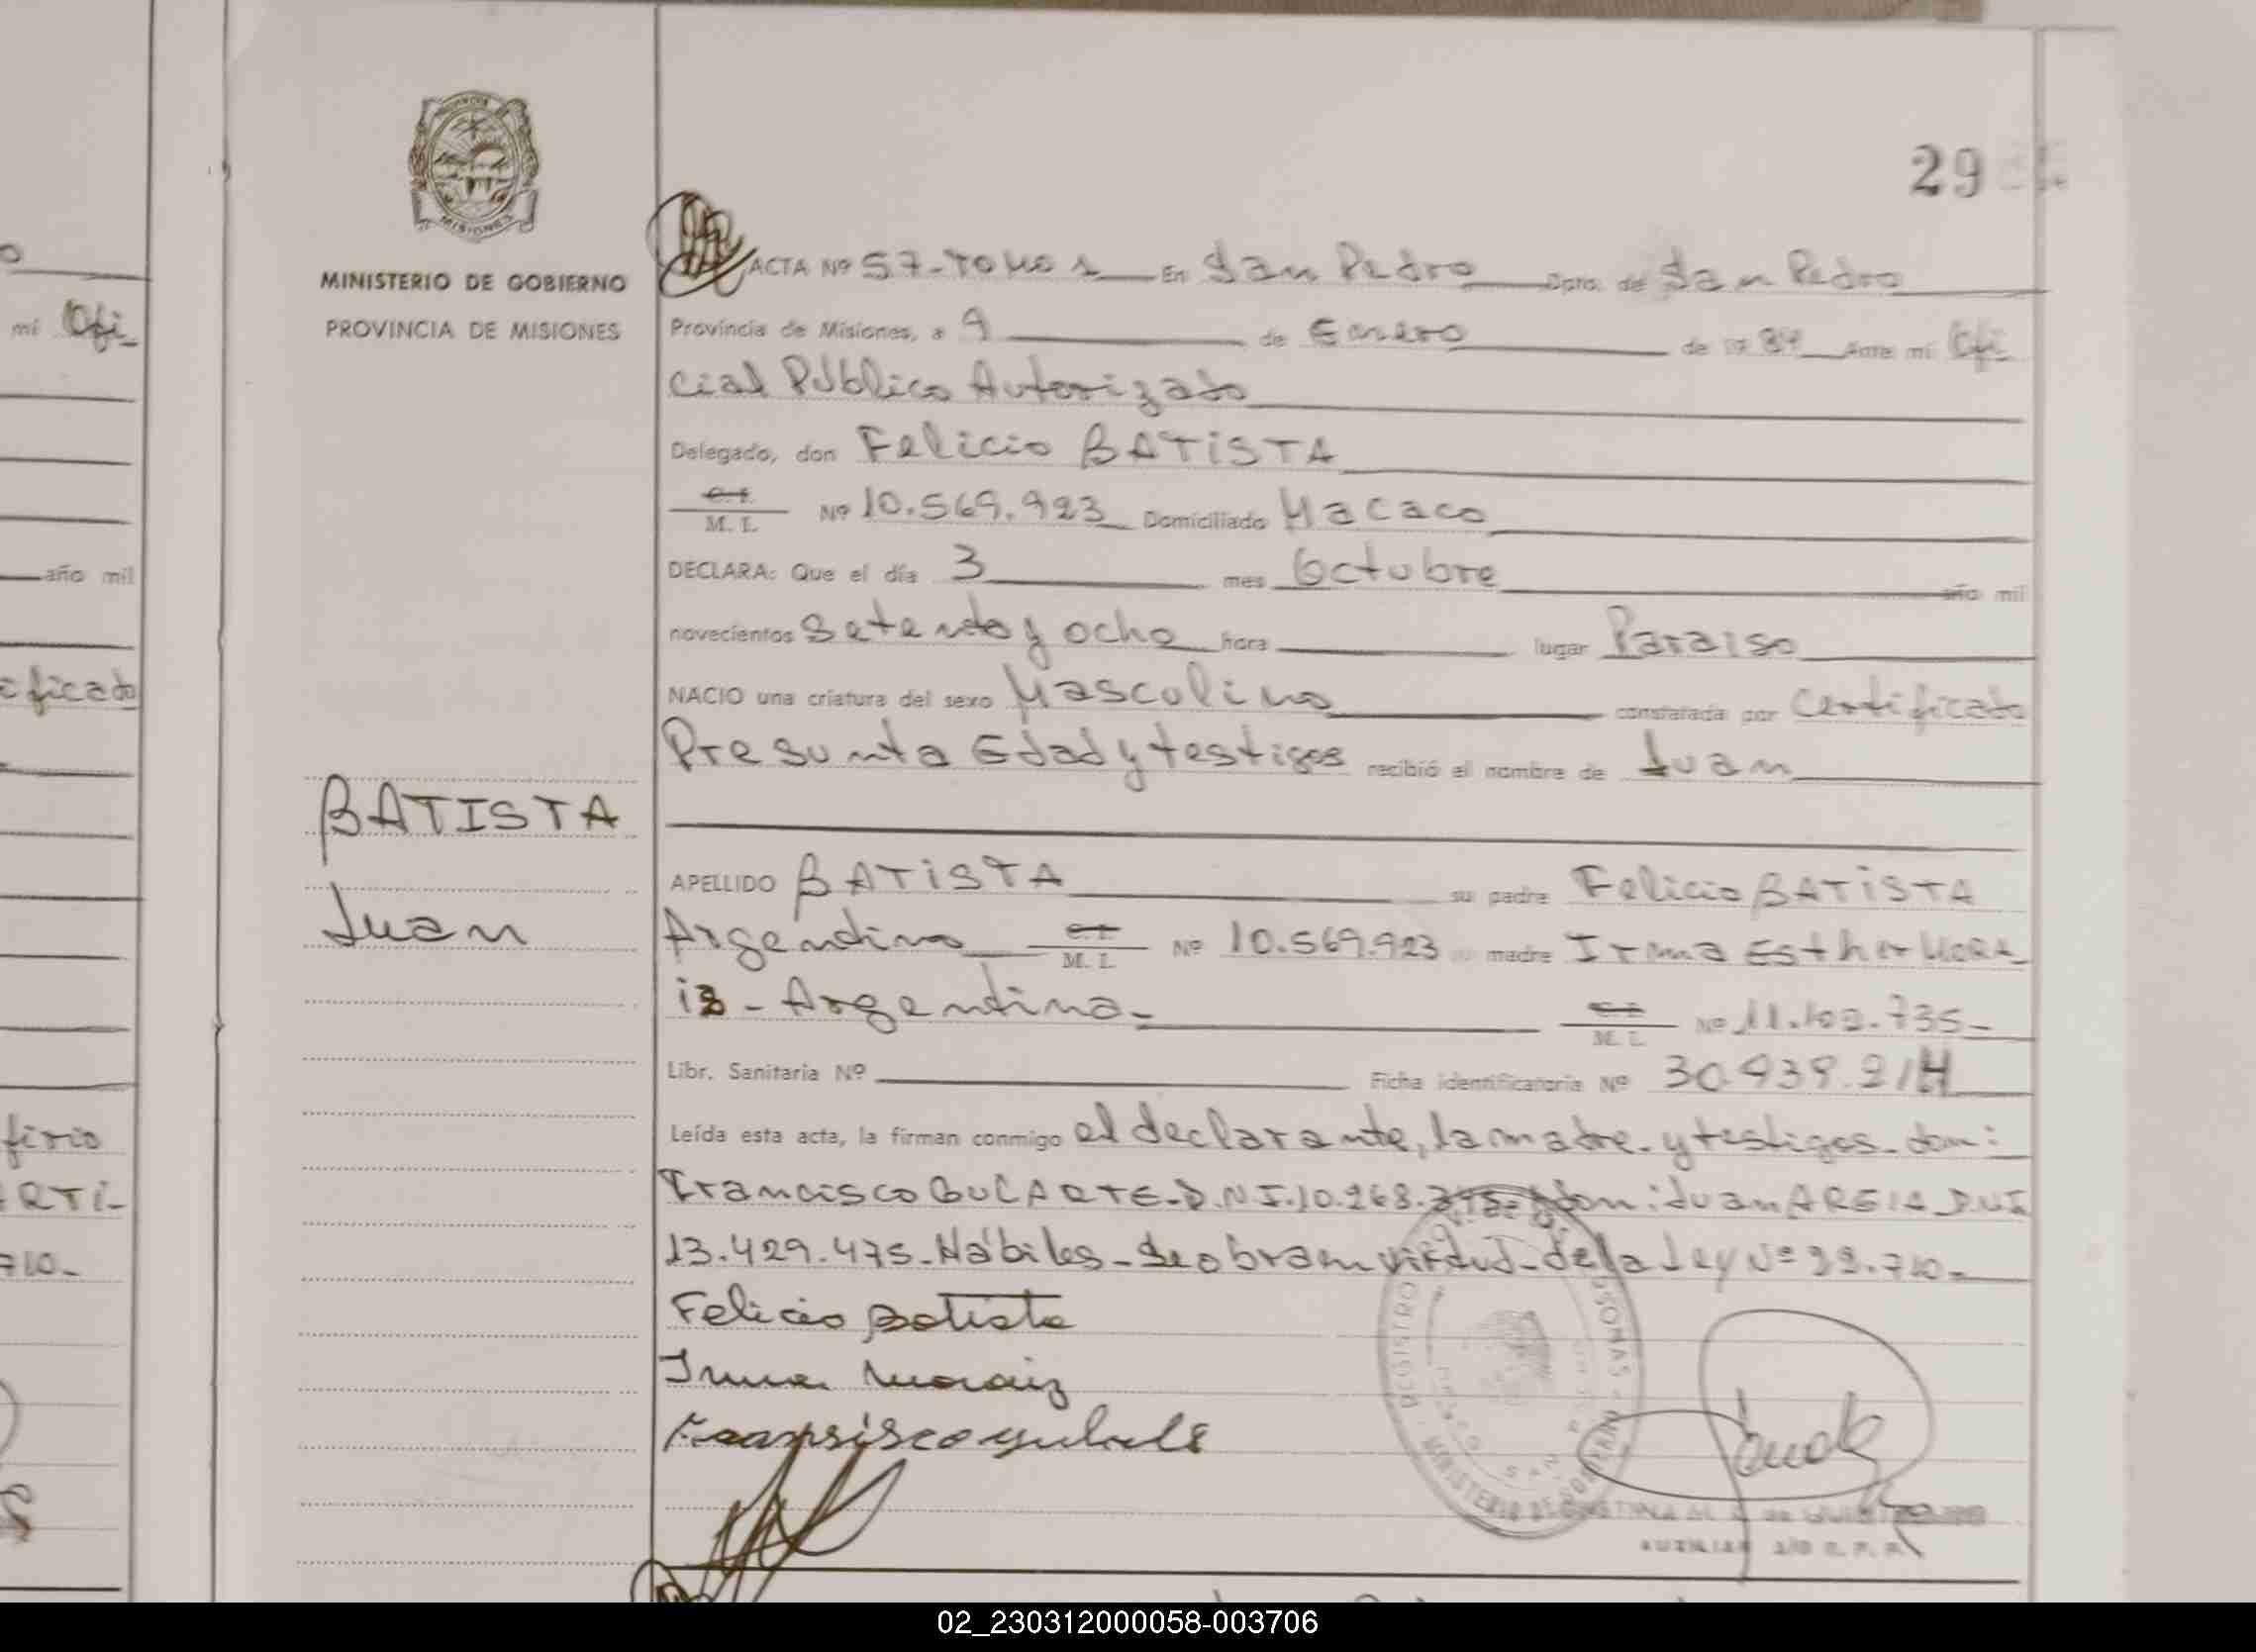 29
MINISTERIO DE GOBIERNO
PROVINCIA DE MISIONES
BATISTA
Juan
ACTA Nº 57-TOMO 1 En San Pedro Dpto. de San Pedro
Provincia de Misiones, a 9 de Enero de 19 84 Ante mi Ofi
cial Público Autorizado
Delegado, don Felicio BATISTA
C. I. M. I. Nº 10.569.923 Domiciliado Macaco
DECLARA: Que el día 3 mes Octubre año mil
novecientos Setenta y ocho hora lugar Paraiso
NACIO una criatura del sexo Masculino constatada por Certificato
Presunta Edad y testigos recibió el nombre de Juan
APELLIDO BATISTA su padre Felicio BATISTA
Argentino C. I. M. I. Nº 10.569.923 su madre Irma Esther MORA
iz - Argentina- C. I. M. I. Nº 11.102.735-
Libr. Sanitaria Nº Ficha identificatoria Nº 30.939.214
Leída esta acta, la firman conmigo el declarante, la madre y testigos don:
Francisco GULARTE-D.N.I.10.268. don: Juan D.N.I
13.429.475-Hábiles-Se obra en virtud-de la Ley Nº 22.710-
Felicio Batista
Irma Moraiz
REGISTRO
PERSONAS
MINISTERIO DE GOBIERNO
AUXILIAR
año mil
mi Ofi
ificado
firio
ARTI-
710-
02_230312000058-003706